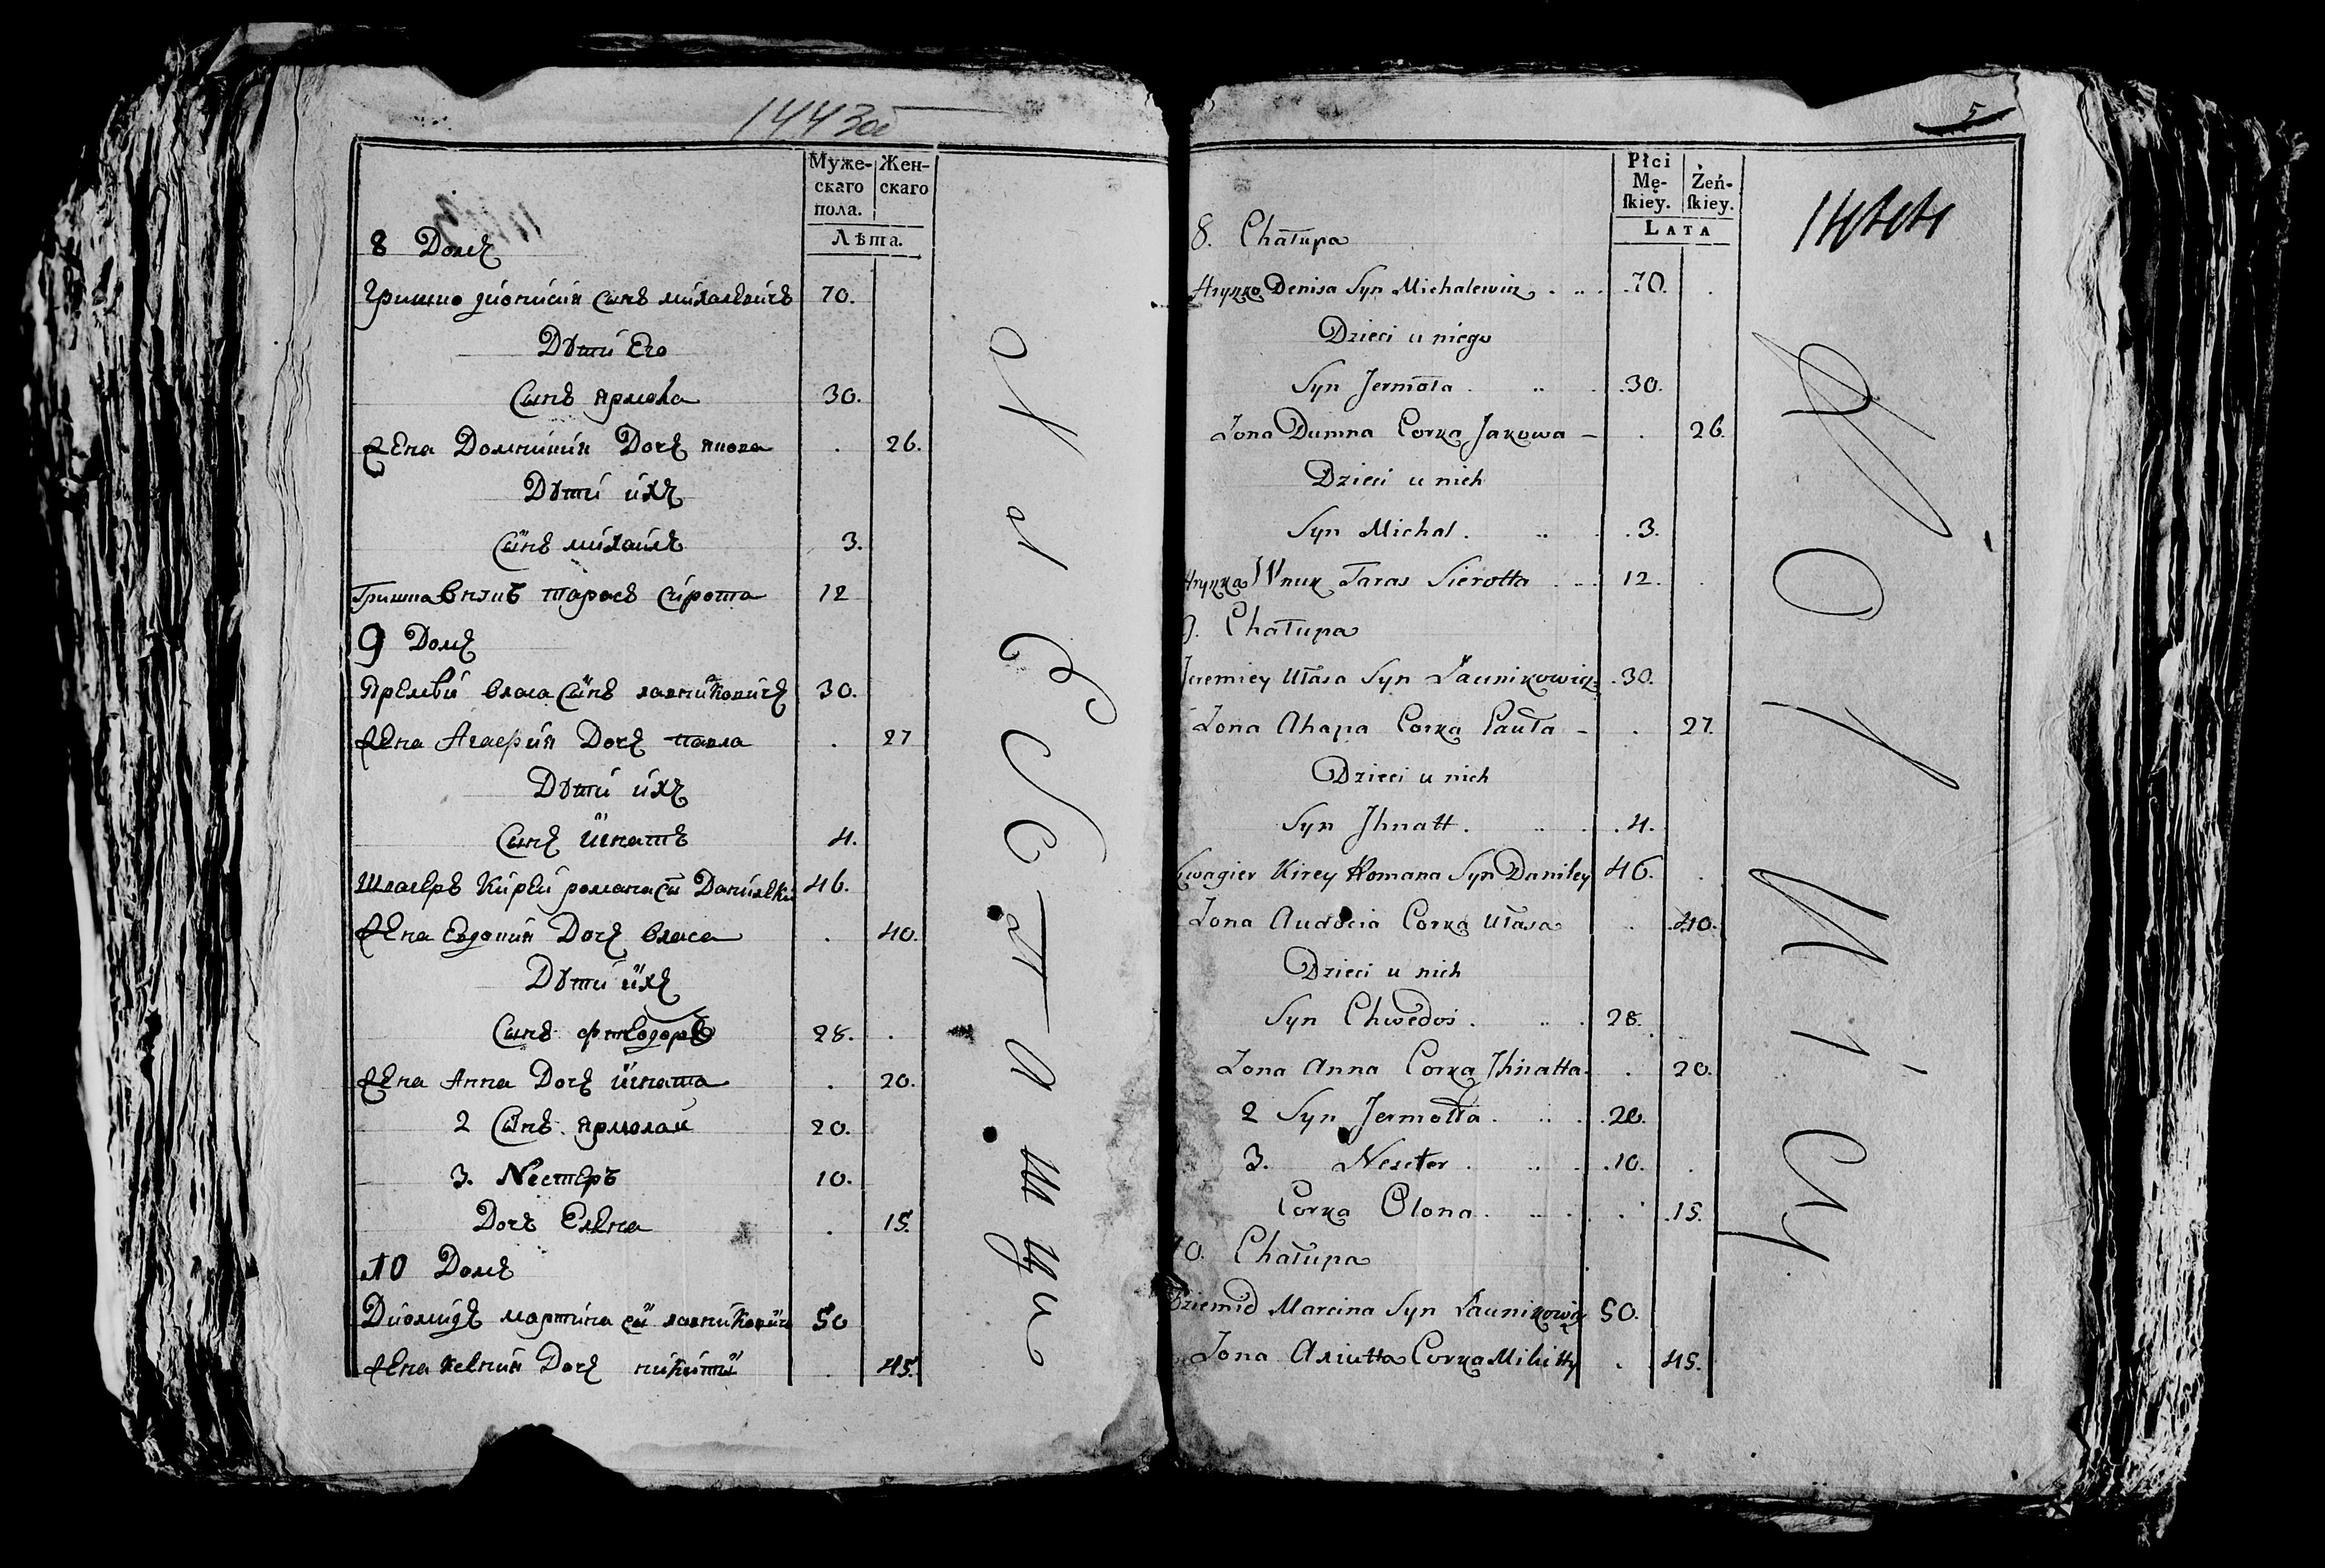 1443об
Муже- Жен-
скаго скаго
пола.
Лѣта.
8 Домъ
Гришко дионисия сынъ михалевичъ 70.
Дѣти Его
Сынъ ярмола 30.
жена Домникия Дочъ якова . 26.
Дѣти ихъ
Сынъ михаилъ 3.
Гришка внукъ тарасъ сирота 12
9 Домъ
Яремѣй власа Сынъ лавниковичъ 30.
жена Агафия Дочъ павла . 27
Дѣти ихъ
Сынъ игнатъ 4.
Швагеръ Кирей романа сы 46.
жена Евдокия Дочъ власа . 40.
Дѣти ихъ
Сынъ 28. .
жена Анна Дочъ игната . 20.
2 Сынъ ярмолай 20.
3. Nестеръ 10.
Дочъ Елена . 15.
10 Домъ
Диомидъ мартина сы лавниковичъ 50
жена Ксения Дочъ никиты . 45.
5
1444
Płci
Mę- Żeń-
skiey. skiey.
LATA
8. Chałupa
Hryzko Denisa Syn Michalewicz . .. . .70. .
Dzieci u niego
Syn Jermoła . .. . .30.
Zona Dumna Corka Jakowa – . 26.
Dzieci u nich
Syn Michal . .. . .3.
Hryzka Wnuk Taras Sierotta . .. 12. .
9. Chałupa
Jeremiey Ułasa Syn Łaunikowicz .30.
Zona Ahapa Corka Pauła – . 27.
Dzieci u nich
Syn Jhnatt . .. . .4.
Szwagier Kirey Romana Syn Daniley 46. .
Zona Audocia Corka Ułasa . .40.
Dzieci u nich
Syn Chwedos . .. . 28. .
Zona Anna Corka Jhnatta . . 20.
2 Syn Jermołła . .. . .20.
3. Nester . .. . .10. .
Corka Olona . .. . . .15.
10. Chałupa
Dziemid Marcina Syn Łaunikowicz 50.
Zona Axiutta Corka Mikitty . 45.